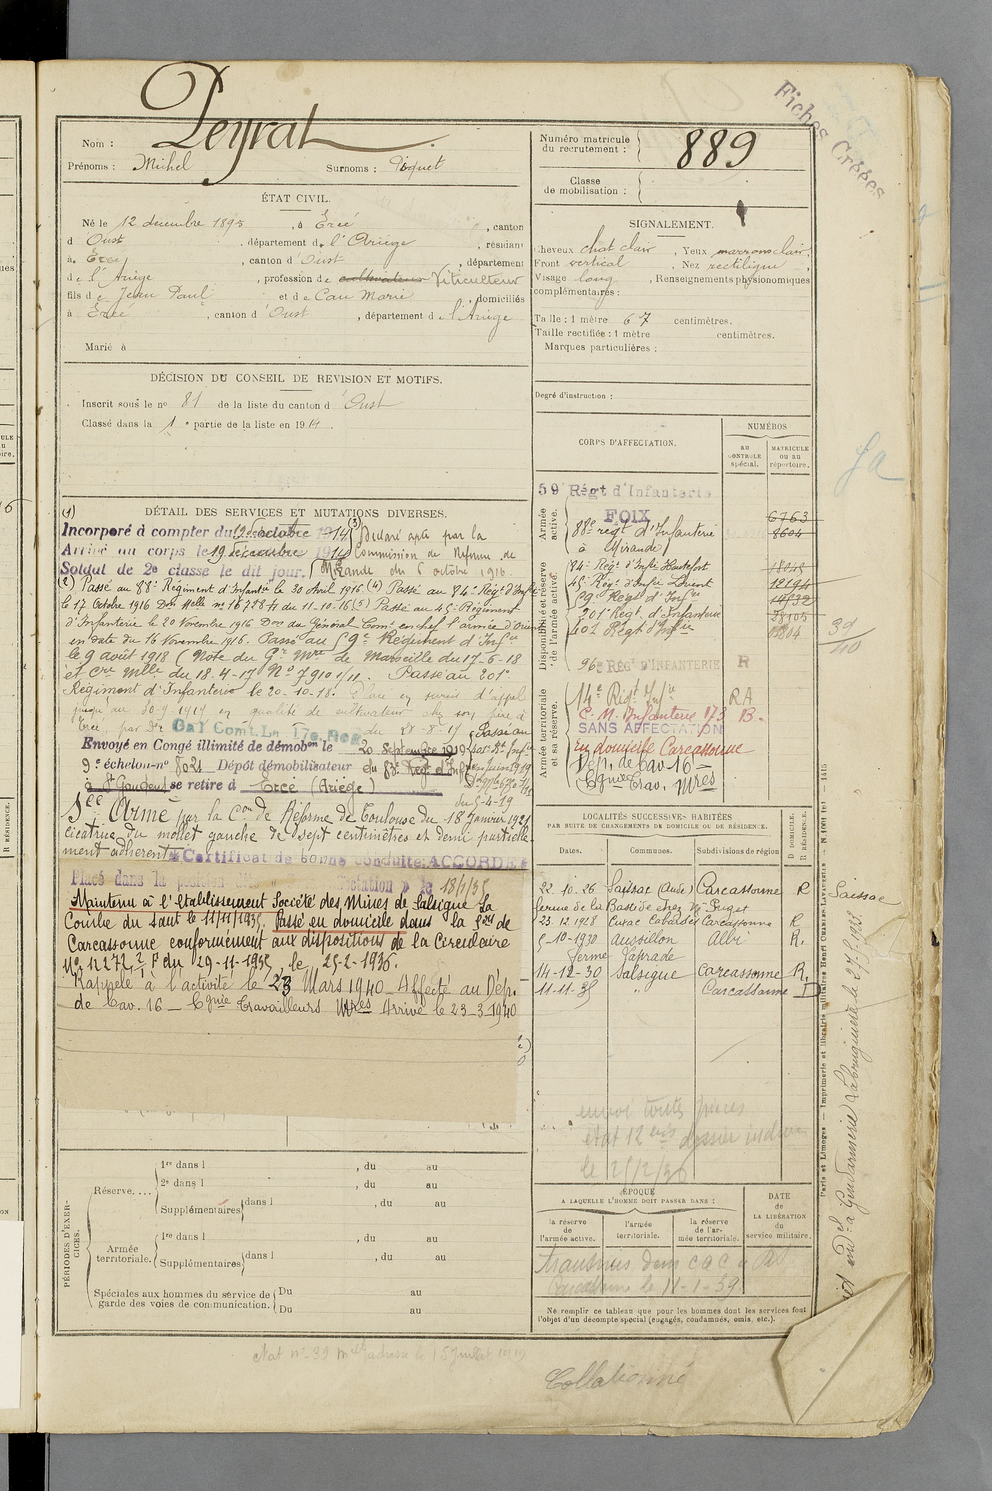 Fiches Créées
Nom : Peyrat
Prénoms : Michel Surnoms : Piquet
Numéro matricule du recrutement : 889
Classe de mobilisation :
ÉTAT CIVIL.
Né le 12 décembre 1895, à Ercé, canton
d Oust, département de l'Ariège, résidant
à Ercé, canton d Oust, département
de l'Ariège, profession de cultivateur Viticulteur
fils de Jean Paul et de Cau Marie, domiciliés
à Ercé, canton d Oust, département de l'Ariège
Marié à
SIGNALEMENT.
Cheveux chat clair, Yeux marrons clair,
Front vertical, Nez rectiligne
Visage long, Renseignements physionomiques
complémentaires :
Taille : 1 mètre 67 centimètres.
Taille rectifiée : 1 mètre centimètres.
Marques particulières :
Degré d'instruction :
DÉCISION DU CONSEIL DE REVISION ET MOTIFS.
Inscrit sous le no 81 de la liste du canton d Oust
Classé dans la 1e partie de la liste en 1914.
DÉTAIL DES SERVICES ET MUTATIONS DIVERSES.
(1) Incorporé à compter du 1914 (3) Déclaré apte par la
Arrivé au corps le 19 décembre 1914 Commission de Réforme de
Soldat de 2e classe le dit jour. Mirande du 6 octobre 1916.
(2) Passé au 88e Régiment d'Infantie le 30 Avril 1916. (4) Passé au 84e Régt d'Infie
le 17 Octobre 1916 Don Melle no 16758 H du 11.10.16 (5) Passé au 45e Régiment
d'Infanterie le 20 Novembre 1916 Don du Général Comt en chef l'armée d'Orient
en date du 16 Novembre 1916. Passé au 59e Régiment d'Infie
le 9 août 1918 (Note du Gr Mre de Marseille du 17-6-18
et Cre Mlle du 18-4-17 No 7910 1/11. Passé au 201e
Régiment d'Infanterie le 20-10-18. Placé en sursis d'appel
jusqu'au 30-9-1919 en qualité de cultivateur chez son père à
Ercé, par Don Gal Comt. La 17e Reg. du 28-8-17 Passé au
Envoyé en Congé illimité de démobon le 20 septembre 1919
9e échelon no 8021 Dépôt démobilisateur du 88e Régt d'Infie
à St Gaudens se retire à Ercé (Ariège)
du 5-4-19
Sce Armé par la Con de Réforme de Toulouse du 18 Janvier 1921
cicatrice du mollet gauche de sept centimètres et demi partielle
ment adhérente Certificat de bonne conduite: ACCORDÉ
Placé dans la position le 18/1/35
Maintenu à l'Etablissement Société des Mines de Salsigne La
Combe du Saut le 11/11/1935. Passé en domicile dans la son de
Carcassonne conformément aux dispositions de la Circulaire
No 12272 du 29-11-1935, le 25-2-1936.
Rappelé à l'activité le 23 Mars 1940 Affecté au Dép.
de Cav. 16 — Cgnie Travailleurs Mres Arrivé le 23-3-1940
CORPS D'AFFECTATION.
NUMÉROS
AU CONTROLE spécial.
MATRICULE OU AU répertoire.
Armée active.
59 Régt d'Infanterie
FOIX 6763
88e régt d'Infanterie 8604
à Mirande
Disponibilité et réserve de l'armée active.
84e Régt d'Infie
45e Régt d'Infie
59e Régt d'Infie
201e Régt d'Infanterie
401 Régt d'Infie
96e RÉGt D'INFANTERIE R
Armée territoriale et sa réserve.
14e Régt d'Infie RA
C.M. Infanterie 173 B.
SANS AFFECTATION
en domicile Carcassonne
Dép. de Cav. 16 —
Cgnie Trav. Mres
39
40
LOCALITÉS SUCCESSIVES HABITÉES
PAR SUITE DE CHANGEMENTS DE DOMICILE OU DE RÉSIDENCE.
Dates. Communes. Subdivisions de région D. DOMICILE. R. RÉSIDENCE.
22.10.26 Saissac (Aude) Carcassonne R
ferme de la Bastide chez Mr Puget
23.12.1928 Cuxac Cabardès Carcassonne R
5-10-1930 Aussillon Albi R.
ferme Japrade
14-12-30 Salsigne Carcassonne R.
11-11-35 " Carcassonne D
Saissac
envoi toutes pièces
ÉPOQUE
A LAQUELLE L'HOMME DOIT PASSER DANS :
la réserve de l'armée active.
l'armée territoriale.
la réserve de l'armée territoriale.
DATE DE LA LIBÉRATION du service militaire.
Carcassonne le 11-1-39
Ne remplir ce tableau que pour les hommes dont les services font
l'objet d'un décompte spécial (engagés, condamnés, omis, etc.).
PÉRIODES D'EXERCICES.
Réserve....
1re dans l , du au
2e dans l , du au
Supplémentaires dans l , du au
Armée territoriale.
1re dans l , du au
Supplémentaires dans l , du au
Spéciales aux hommes du service de garde des voies de communication.
Du au
Du au
Collationné